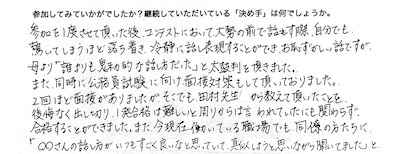 参加してみていかがでしたか?継続していただいている「決め手」は何でしょうか。
参加を1度させて頂いた後、コンテストにおいて大勢の前で話をす際、自分でも
驚いてしまうほど落ち着き、冷静に話し表現することができ、お恥ずかしい話ですが、
母より“誰よりも魅力的な話し方だった”と太鼓判を頂きました。
また、同時に公務員試験に向け面接対策もして頂いておりました。
2回ほど面接がありましたが、そこでも田村先生から教えて頂いたことを
後悔なく出しきり、1発合格は難しいと周りからは言われていたにも関わらず、
合格することができました。また、今現在働いている職場でも、同僚の方たちに、
「〇〇さんの話し方がいつもすごく良いなと思っていて、真似しようと思いながら聞いてました」と